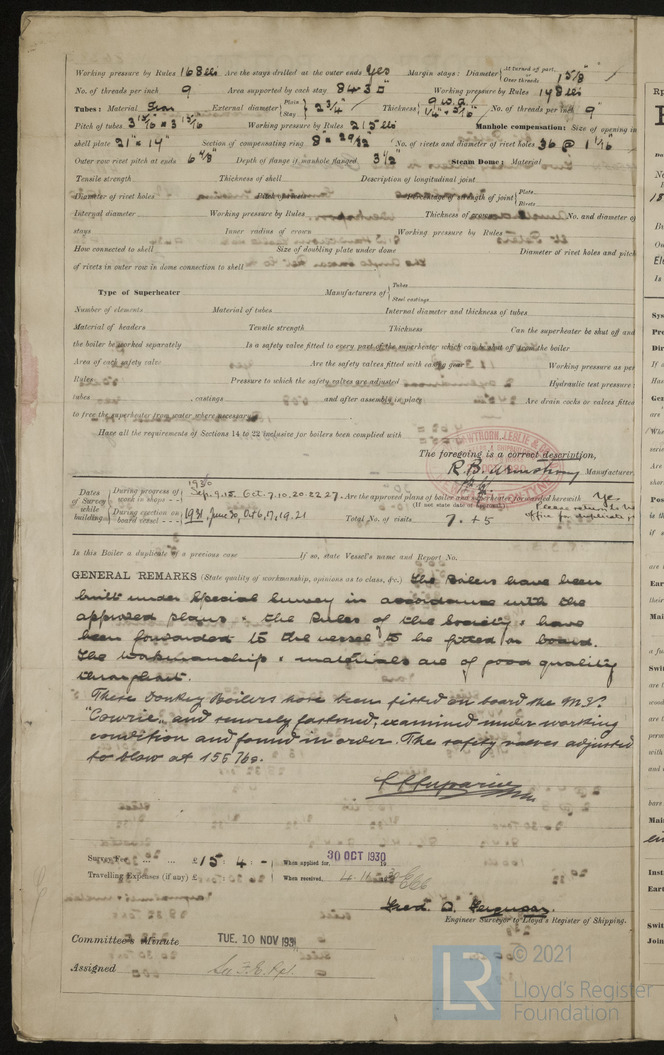 Working pressure by Rules 168 lbs Are the stays drilled at the outer ends Yes Margin stays: Diameter { At turned off part, or Over threads 1 5/8" /
No. of threads per inch 9 Area supported by each stay 84.3 □" Working pressure by Rules 148 lbs
Tubes: Material Iron External diameter { Plain Stay } 2 3/4" Thickness { 9 W.G. 1/4" + 5/16" No. of threads per inch 9
Pitch of tubes 3 13/16" x 3 13/16" Working pressure by Rules 215 lbs Manhole compensation: Size of opening in
shell plate 21" x 14" Section of compensating ring 8" x 29/32" No. of rivets and diameter of rivet holes 36 @ 1 1/16"
Outer row rivet pitch at ends 6 4/8" Depth of flange if manhole flanged 3 1/2" Steam Dome: Material
Tensile strength Thickness of shell Description of longitudinal joint
Diameter of rivet holes Pitch of rivets Percentage of strength of joint { Plate, Rivets
Internal diameter Working pressure by Rules Thickness of crown No. and diameter of
stays Inner radius of crown Working pressure by Rules
How connected to shell Size of doubling plate under dome Diameter of rivet holes and pitch
of rivets in outer row in dome connection to shell
Type of Superheater Manufacturers of { Tubes Steel castings
Number of elements Material of tubes Internal diameter and thickness of tubes
Material of headers Tensile strength Thickness Can the superheater be shut off and
the boiler be worked separately Is a safety valve fitted to every part of the superheater which can be shut off from the boiler
Area of each safety valve Are the safety valves fitted with easing gear Working pressure as per
Rules Pressure to which the safety valves are adjusted Hydraulic test pressure:
tubes , castings and after assembly in place Are drain cocks or valves fitted
to free the superheater from water where necessary
Have all the requirements of Sections 14 to 22 inclusive for boilers been complied with
HAWTHORN, LESLIE &
The foregoing is a correct description,
R. B. Armstrong Manufacturer.
Dates of Survey while building { During progress of work in shops - - 1930 Sep. 9.15. Oct. 7.10.20.22.27. Are the approved plans of boiler and superheater forwarded herewith Yes
(If not state date of approval.) Please return to
During erection on board vessel - - - 1931 June 30, Oct 6, 7, 19. 21 Total No. of visits 7. + 5 office for duplicate
Is this Boiler a duplicate of a previous case If so, state Vessel's name and Report No.
GENERAL REMARKS (State quality of workmanship, opinions as to class, &c.) The Boilers have been
built under Special Survey in accordance with the
approved plans & the Rules of the Society & have
been forwarded to the vessel to be fitted on board.
The workmanship & materials are of good quality
throughout.
These Donkey Boilers have been fitted on board the M.V.
"Cowrie," and securely fastened, examined under working
condition and found in order. The safety valves adjusted
to blow at 155 lbs.
Survey Fee ... ... £ 15 : 4 : - When applied for, 30 OCT 1930
Travelling Expenses (if any) £ : : When received,
Fred. D. Ferguson.
Engineer Surveyor to Lloyd's Register of Shipping.
Committee's Minute TUE. 10 NOV 1931
Assigned See F.E. Rpt.
© 2021
LR Lloyd's Register
Foundation